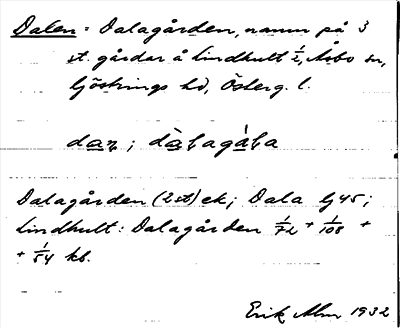 Dalen = Dalagården, namn på 3
st. gårdar å Lindhult 1/2, Åsbo sn,
Göstrings hd, Österg. l.
dan ; dàlagála
Dalagården (2 st) ek; Dala lj 45;
Lindhult: Dalagården 1/72 + 1/108 +
+ 1/54 kb.
Erik Alm 1932